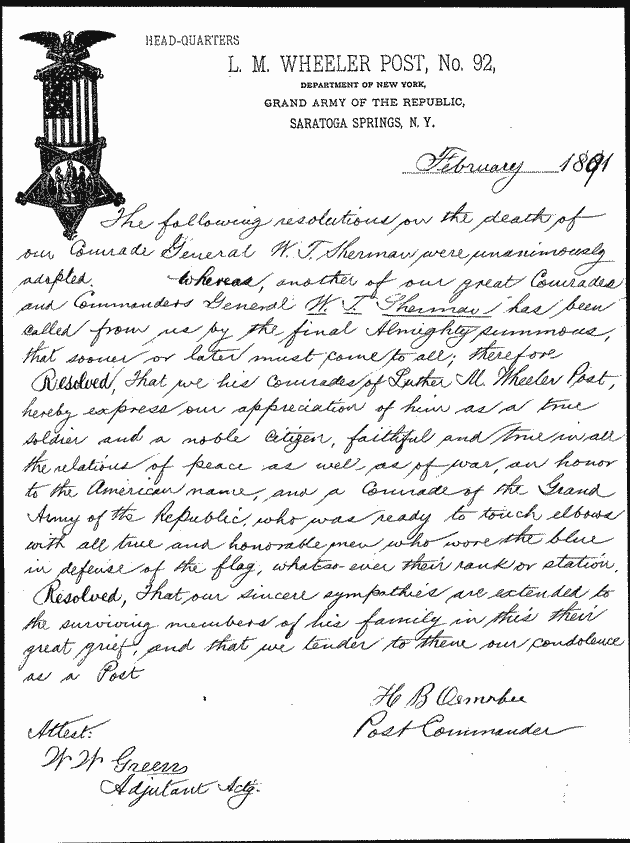 HEAD-QUARTERS
L. M. WHEELER POST, No. 92,
DEPARTMENT OF NEW YORK,
GRAND ARMY OF THE REPUBLIC,
SARATOGA SPRINGS, N. Y.
February 1891
The following resolutions on the death of
our Comrade General W. T. Sherman were unanimously
adopted. Whereas, another of our great Comrades
and Commanders General W. T. Sherman, has been
called from us by the final Almighty summons,
that sooner or later must come to all; therefore
Resolved, That we his comrades of Luther M. Wheeler Post,
hereby express our appreciation of him as a true
soldier and a noble citizen, faithful and true in all
the relations of peace as well as of war, an honor
to the American name, and a Comrade of the Grand
Army of the Republic, who was ready to touch elbows
with all true and honorable men who wore the blue
in defense of the flag, whatso-ever their rank or station.
Resolved, That our sincere sympathies are extended to
the surviving members of his family in this their
great grief, and that we tender to them our condolence
as a Post
H B
Post Commander
Attest:
W W Green
Adjutant Actg.